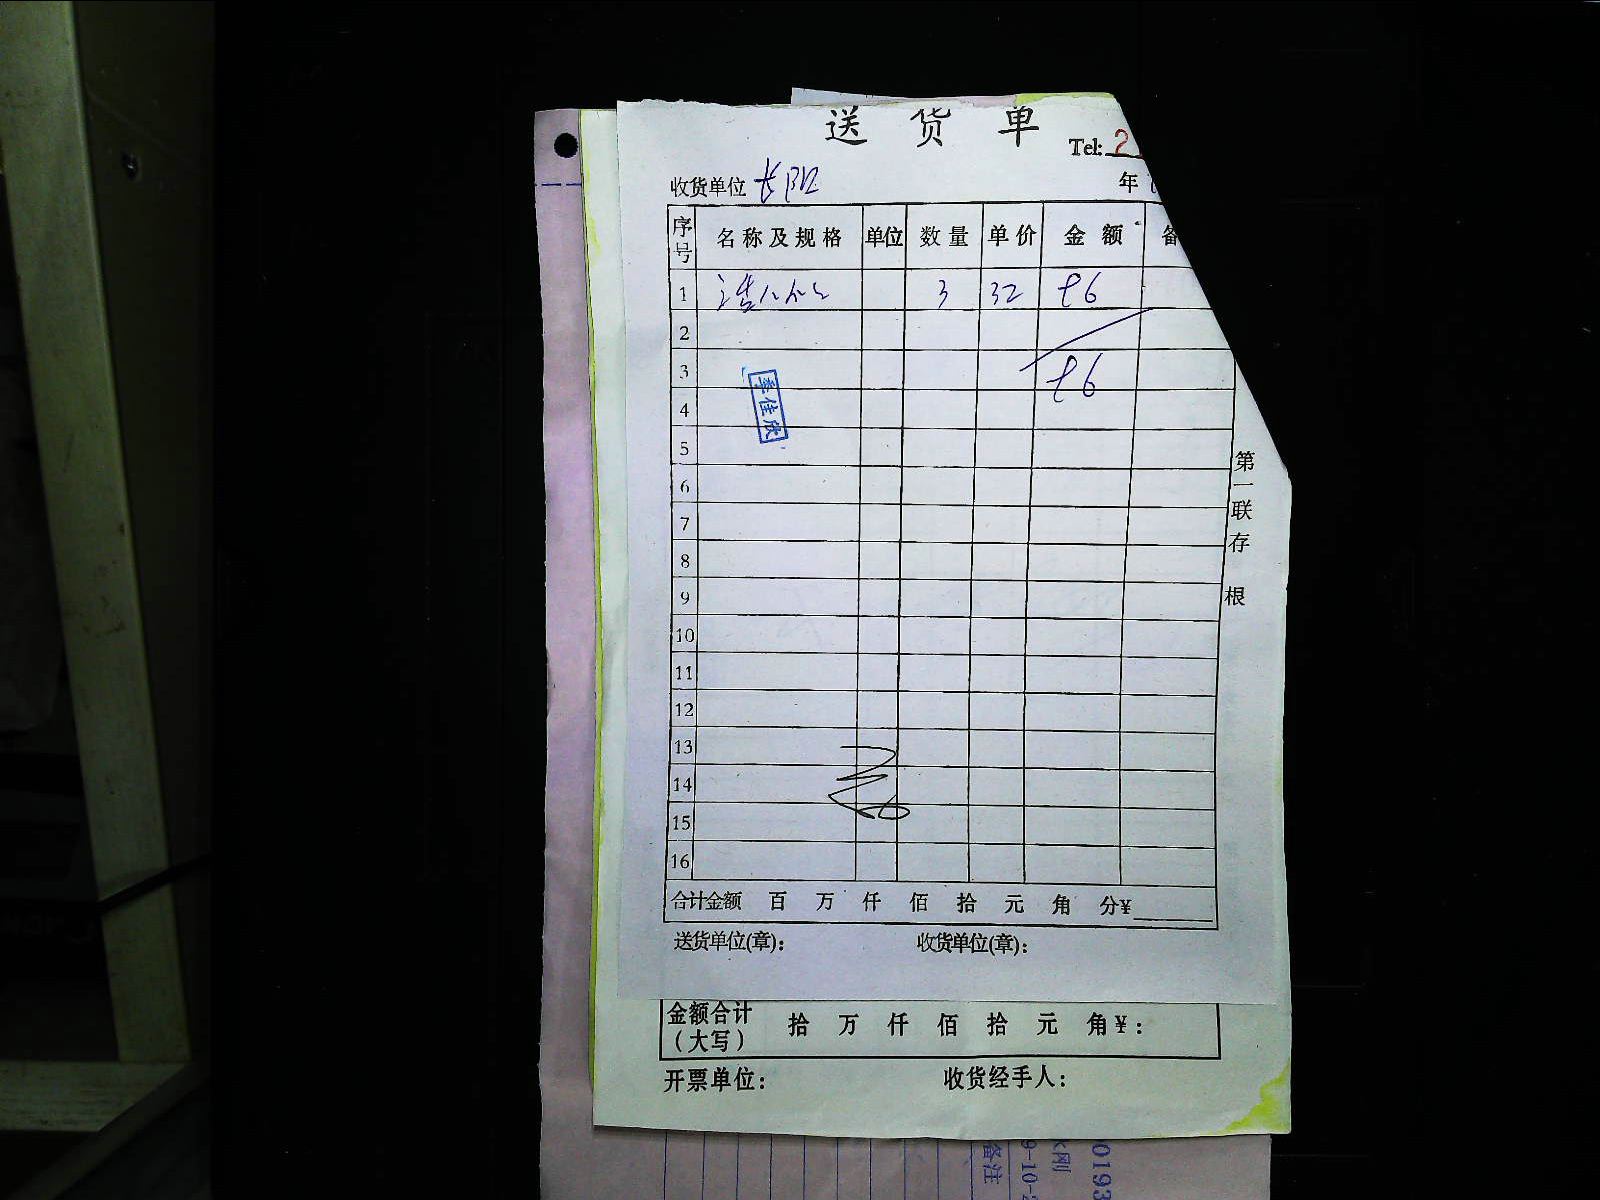 送货单
Tel: 2
收货单位 年
序号 名称及规格 单位 数量 单价 金额 备
1 3 32 96
2
3 96
李佳欣
4
5
6
7
8
9
10
11
12
13
14
15
16
第一联存根
合计金额 百 万 仟 佰 拾 元 角 分¥
送货单位(章): 收货单位(章):
金额合计(大写) 拾 万 仟 佰 拾 元 角¥:
开票单位: 收货经手人:
备注
9-10-2
刚
0193